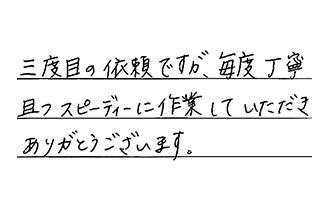 三度目の依頼ですが、毎度丁寧
且つスピーディーに作業していただき
ありがとうございます。